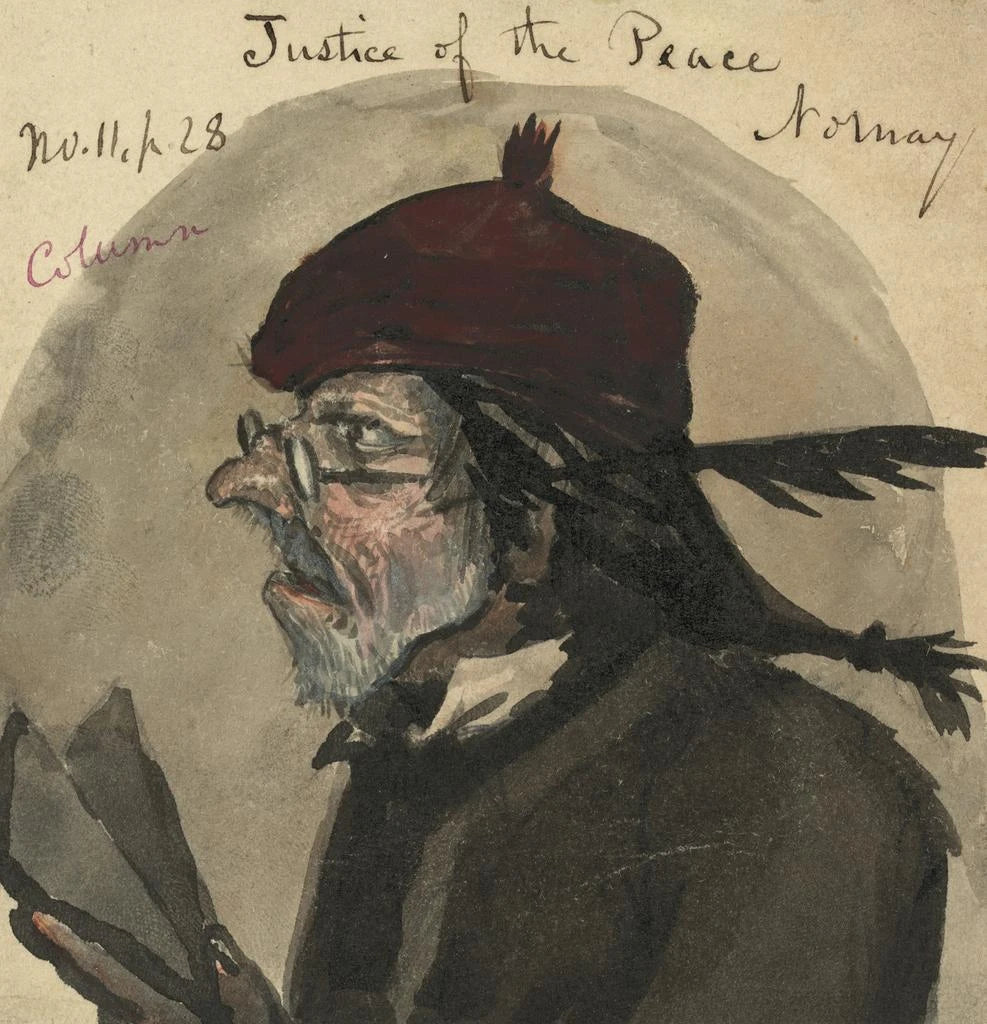 Justice of the Peace
No. 11, p. 28
Nornay
Column